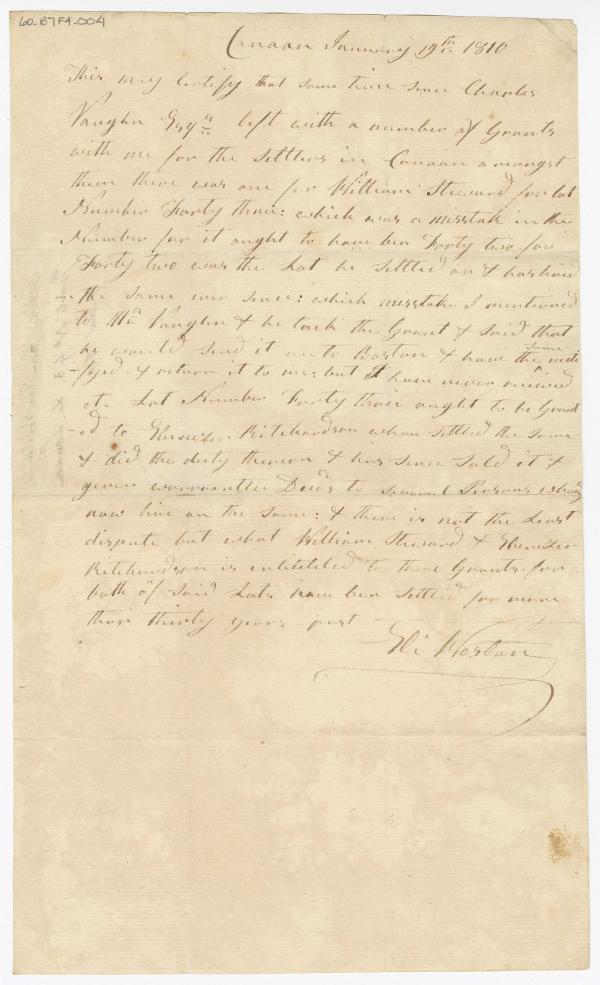 60-87F4-004
Canaan January 19th 1810
This may Certify that some time since Charles
Vaughn Esqr left with a number of Grants
with me for the Settlers in Canaan amongst
them there was one for William Steward for lot
Number Forty three: which was a misstake in the
Number for it ought to have ben Forty two for
Forty two was the Lot he Settled on &
the same ever since: which misstake I mentioned
to Mr Vaughn & he took the Grant & Said that
he would Send it on to Boston & have the same
& return it to me: but I have never received
it - Lot Number Forty three ought to be Grant
-ed to Ebenezer Ritchardson whom Settled the Same
& did the duty thereon & has since Sold it &
given warrantter Deeds to Several Persons
now live on the same: & there is not the Least
dispute but what William Steward & Ebenezer
Ritchardson is intitteled to those Grants for
both of Said Lots have ben Settled for more
than thirty years past -
Eli Weston